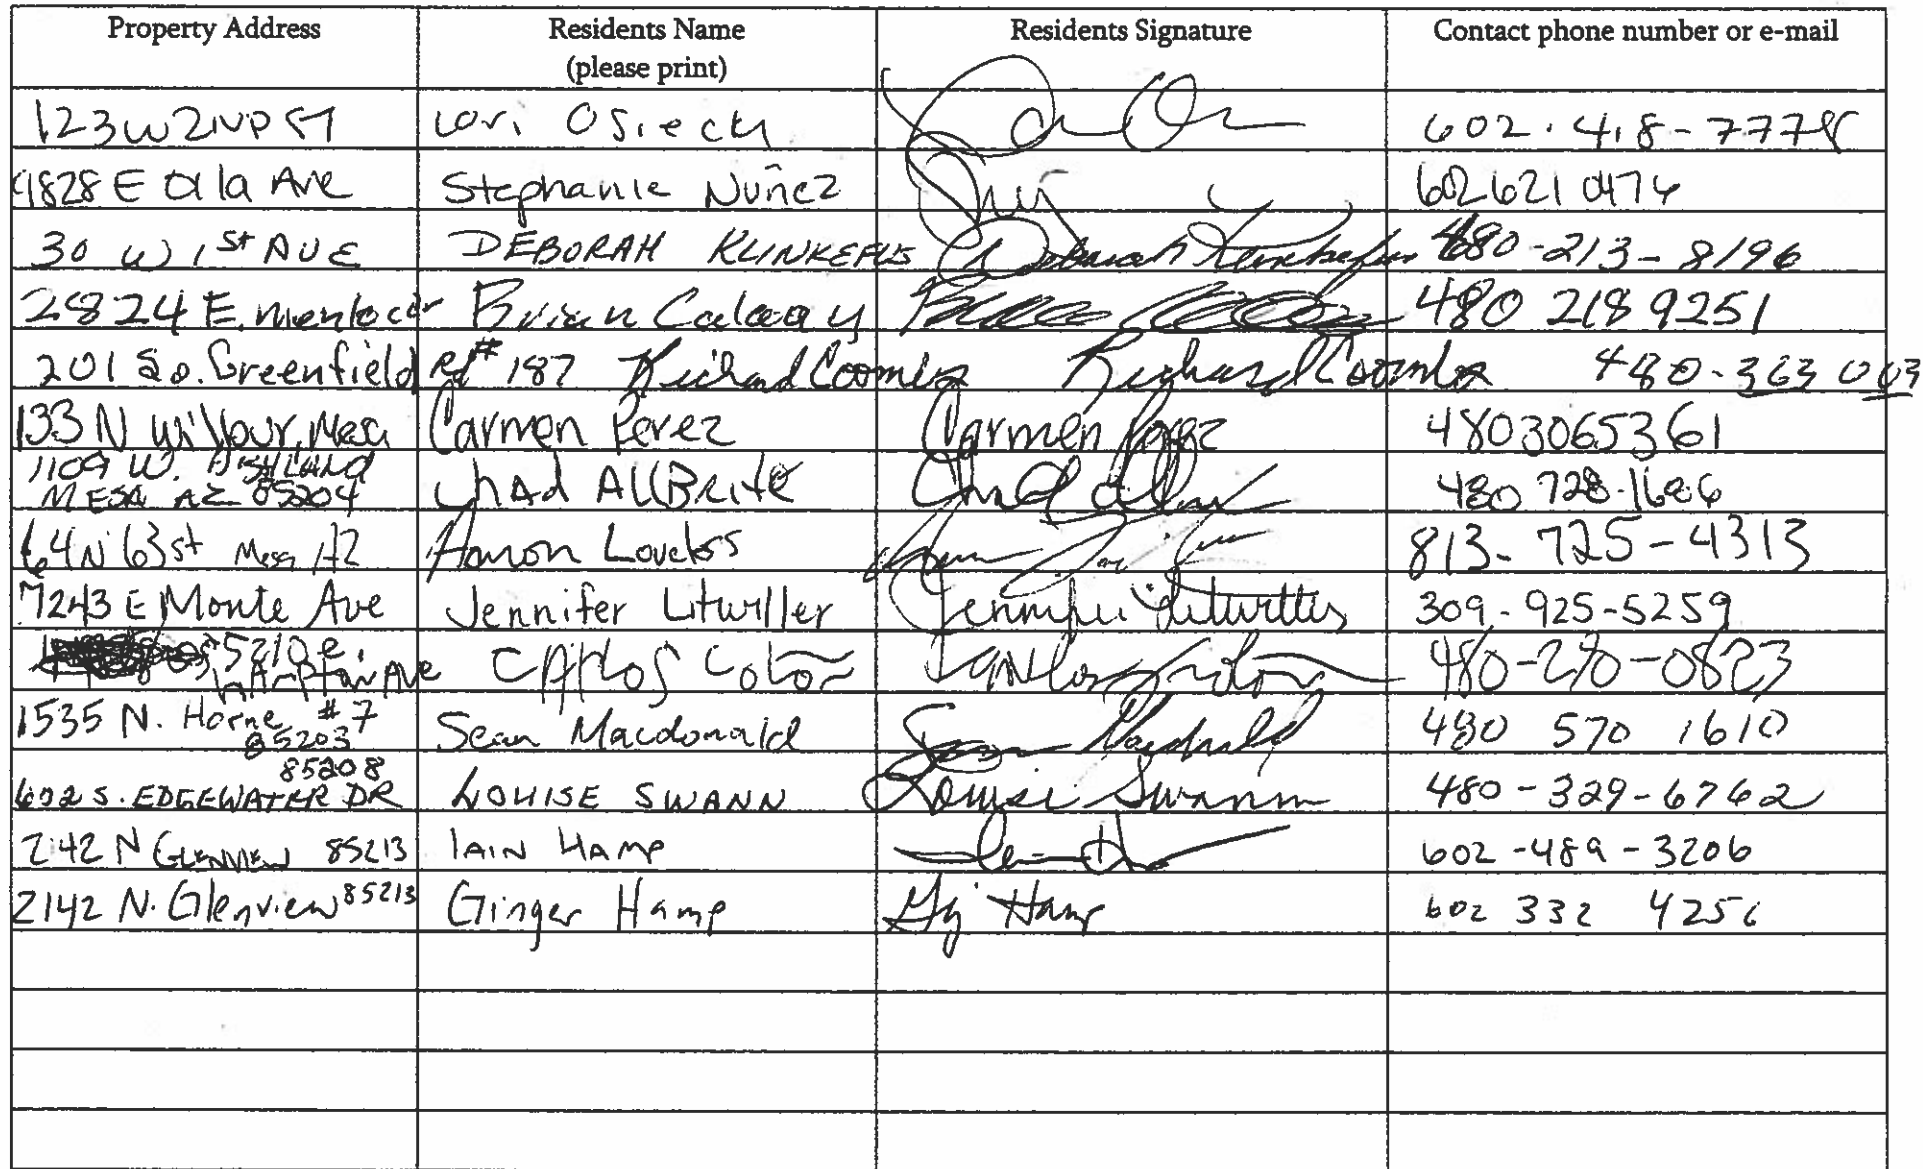 Property Address Residents Name Residents Signature Contact phone number or e-mail
(please print)
123 W 2ND ST Lori Osieck 602.418-7778
E Olla Ave Stephanie Nuñez 602 621 0476
30 W 1st AVE DEBORAH KLINKEFUS Deborah Klinkefus 480-213-8196
2824 E. Menlo cir Brian 480 218 9251
201 So. Greenfield rd # 187 Richard Coombs Richard Coombs 480-363
133 N Wilbur, Mesa Carmen Perez Carmen Perez 4803065361
1109 W.
MESA AZ 85204 Chad AllBrite Chad 480 728
64 N 63 st Mesa AZ 813-725-4313
7243 E Monte Ave Jennifer Litwiller Jennifer Litwiller 309-925-5259
5210 e.
Ave CARlos Colon Carlos Colon 480-270-0823
1535 N. Horne #7 Sean Macdonald Sean Macdonald 480 570 1610
85203
85208
602 S. EDGEWATER DR LOUISE SWANN Louise Swann 480-329-6762
2142 N GLENVIEW 85213 IAIN HAMP 602-489-3206
2142 N. Glenview 85213 Ginger Hamp Hamp 602 332 4256